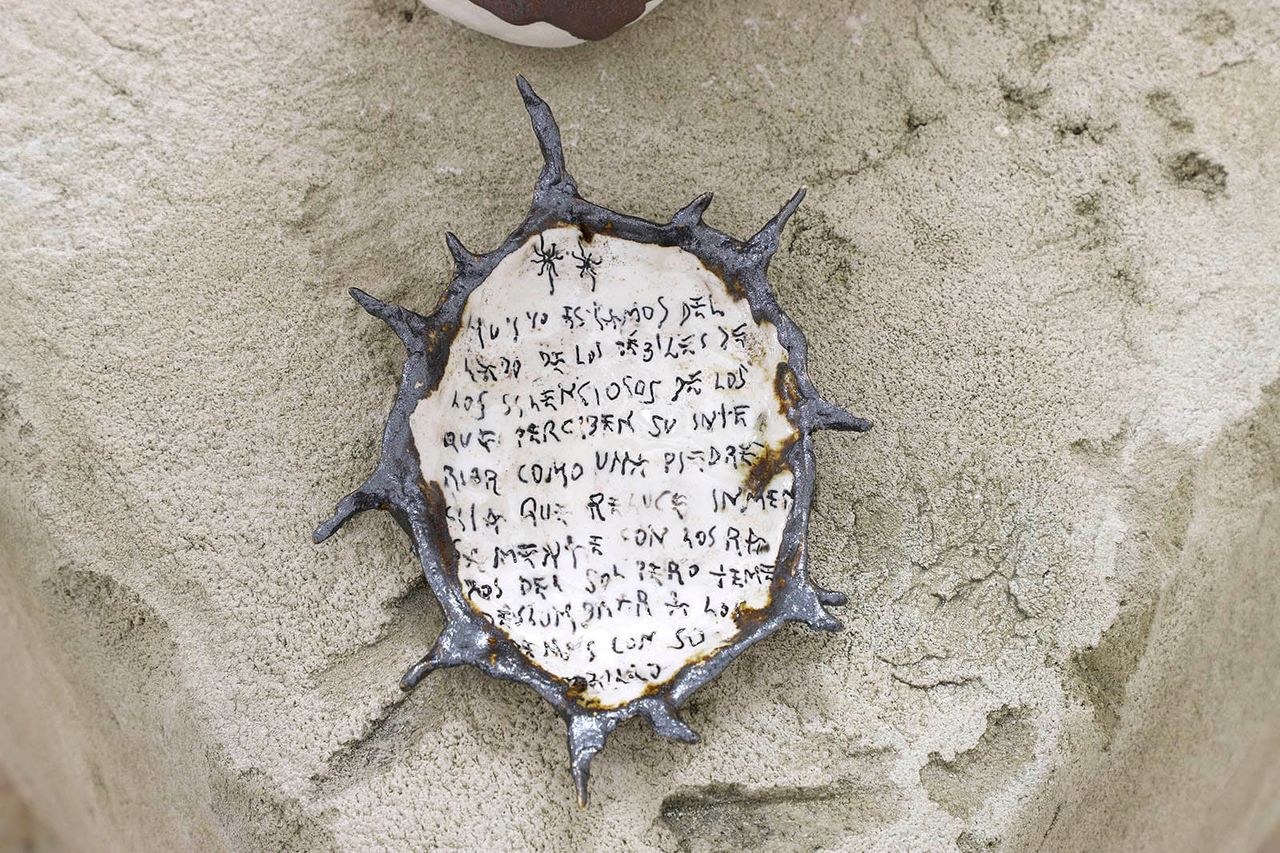 TU Y YO ESTAMOS DEL
LADO DE LOS DÉBILES DE
LOS SILENCIOSOS DE LOS
QUE PERCIBEN SU INTE
RIOR COMO UNA PIEDRE
SILA QUE RELUCE INMEN
SA MENTE CON LOS RA
YOS DEL SOL PERO TEME
DESLUMBRAR A LOS
DEMAS CON SU
BRILLO